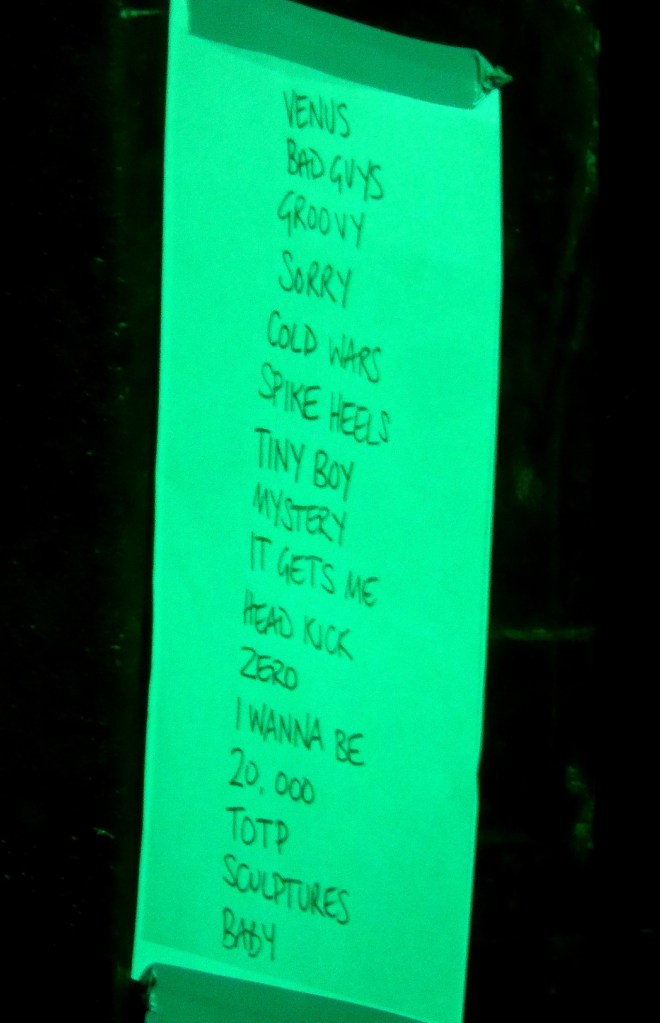 VENUS
BAD GUYS
GROOVY
SORRY
COLD WARS
SPIKE HEELS
TINY BOY
MYSTERY
IT GETS ME
HEAD KICK
ZERO
I WANNA BE
20.000
TOTP
SCULPTURES
BABY